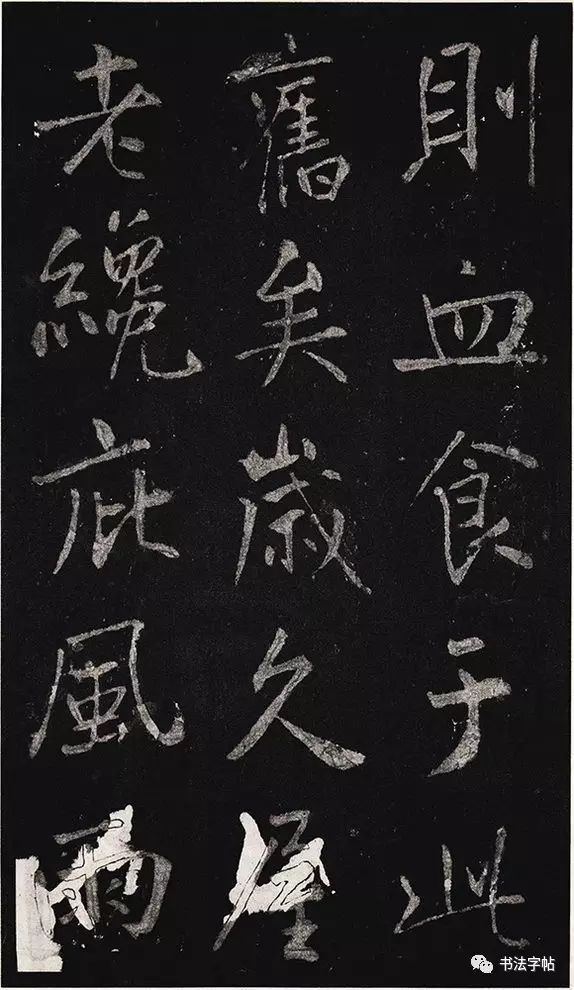 則血食于此
舊矣歲久屋
老纔庇風雨
书法字帖